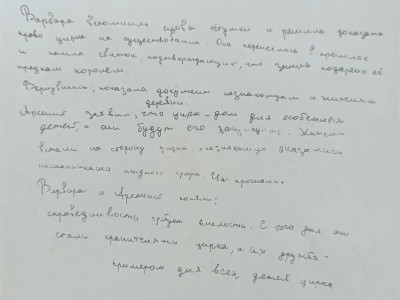 Варвара вспомнила слова бабушки и решила доказать
право цирка на существование. Она перенеслась в прошлое
и нашла свиток, подтверждающий, что земля подарена её
предкам королём.
Вернувшись, показала документ незнакомцам и жителям
деревни.
Арсений заявил, что цирк - дом для особенных
детей, и они будут его защищать. Жители
встали на сторону цирка, незнакомцы оказались
помощниками жадного графа. Их прогнали.
Варвара и Арсений поняли:
справедливость требует смелости. С того дня они
стали хранителями цирка, а их дружба -
примером для всех детей цирка